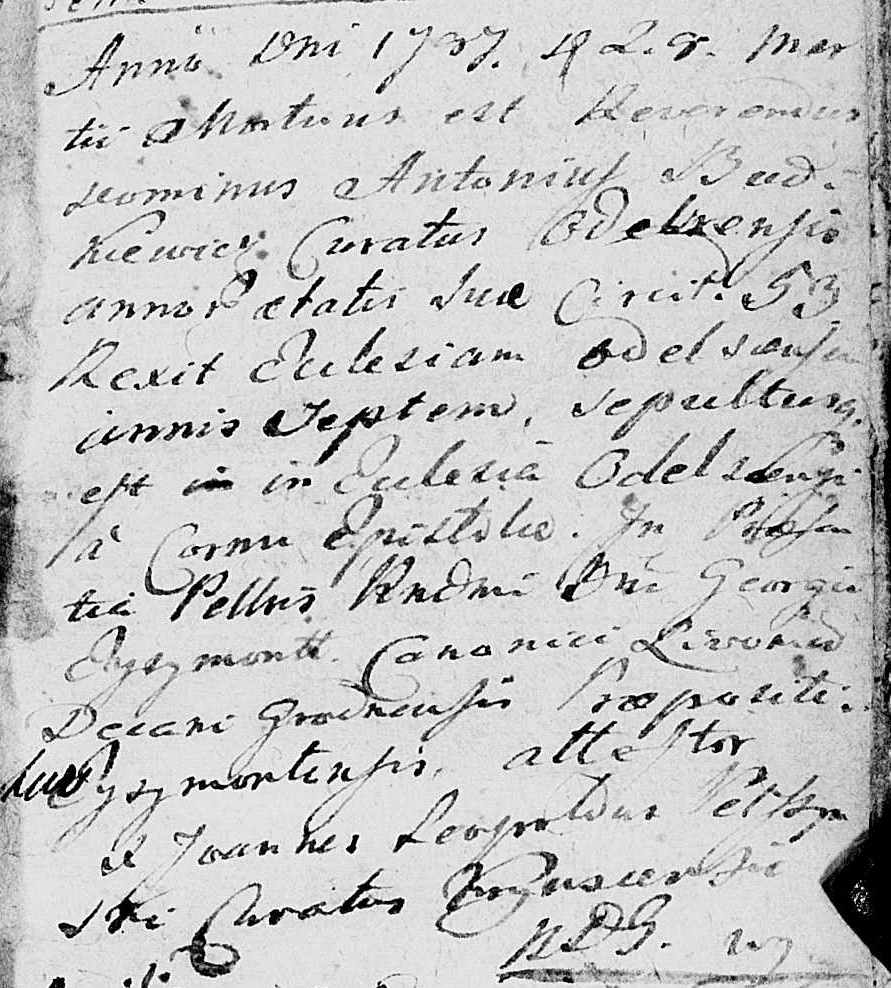 Anno Dni 1737. d 28. Mar
tii Mortuus est Reverendus
Dominus Antonius Bud-
kiewicz Curatus Odelscensis
annor ætatis suæ Circit. 53
Rexit Eclesiam Odelscensem
annis Septem, sepultus
est in Eclesia Odelscensi
a Cornu Epistolæ. In Præsen
tia Pellris Rndmi Dni Georgii
Eyszymontt Canonici Livoniæ
Decani Grodnensis Præpositi
Eyszymontensis, attestor
Joannes Leopoldus
ski Curatus